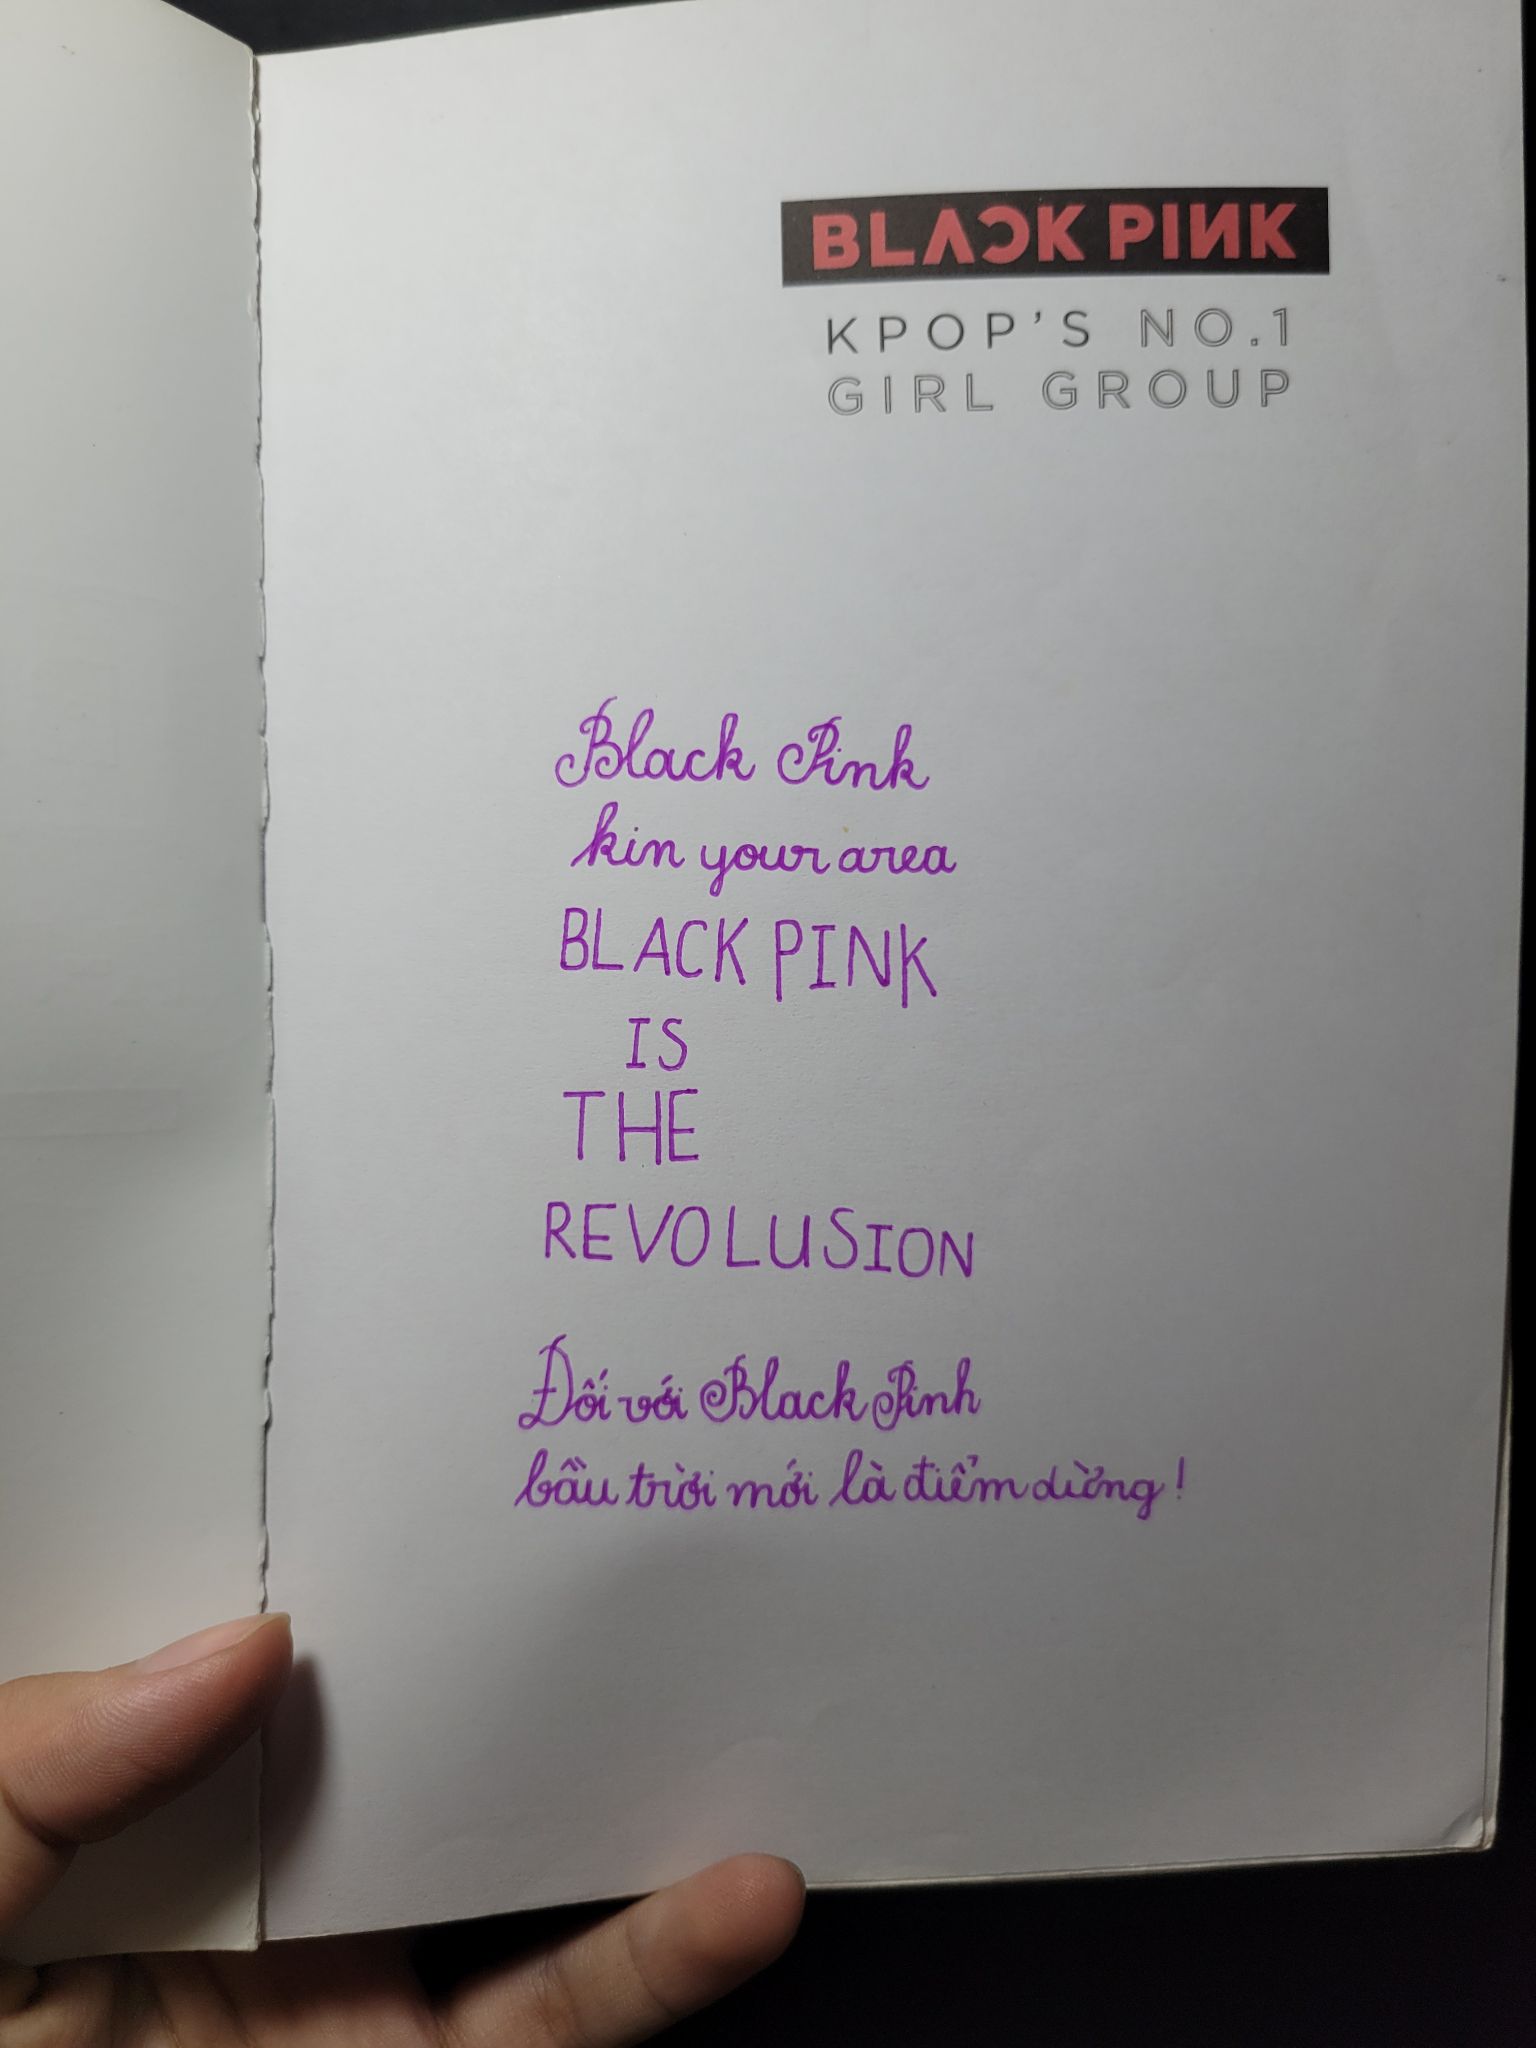 BLACKPINK
KPOP'S NO.1
GIRL GROUP
Black Pink
kin your area
BLACKPINK
IS
THE
REVOLUSION
Đối với Black Pinh
bầu trời mới là điểm dừng!